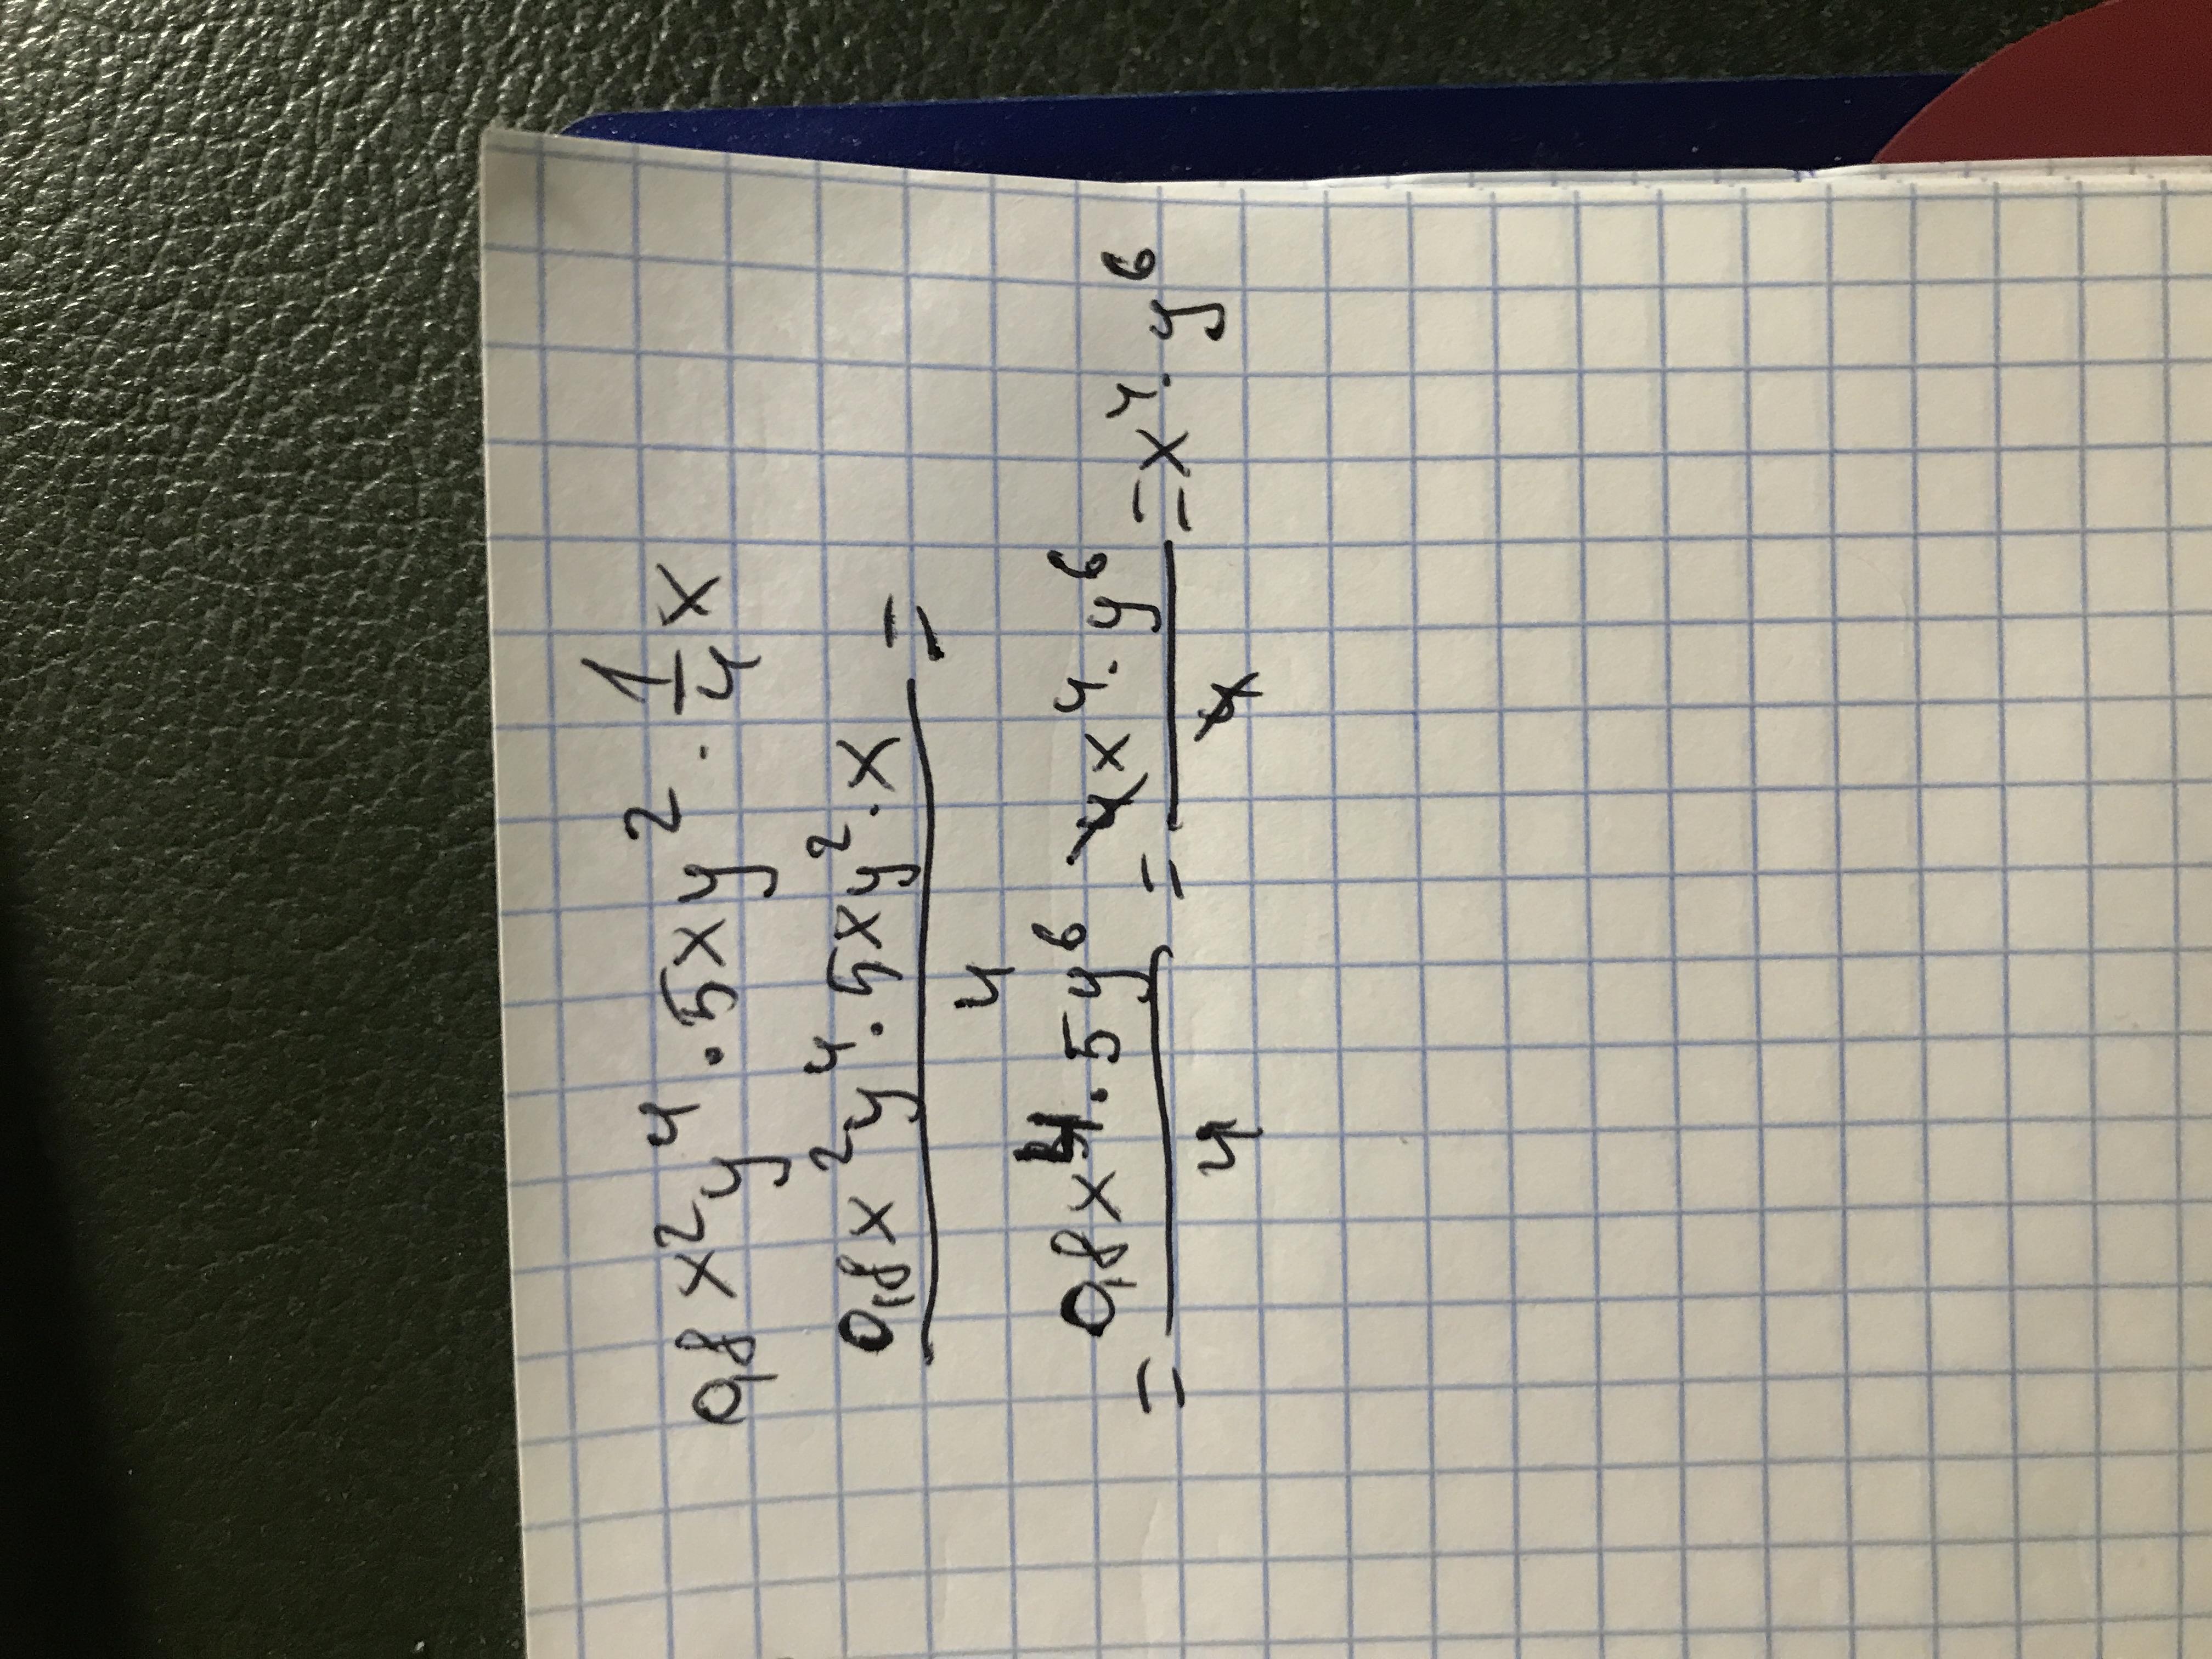 0,8x²y⁴ · 5xy² · 1/4 x
0,8x²y⁴ · 5xy² · x / 4 =
= 0,8x⁴ · 5y⁶ / 4 = 4x⁴ · y⁶ / 4 = x⁴ · y⁶